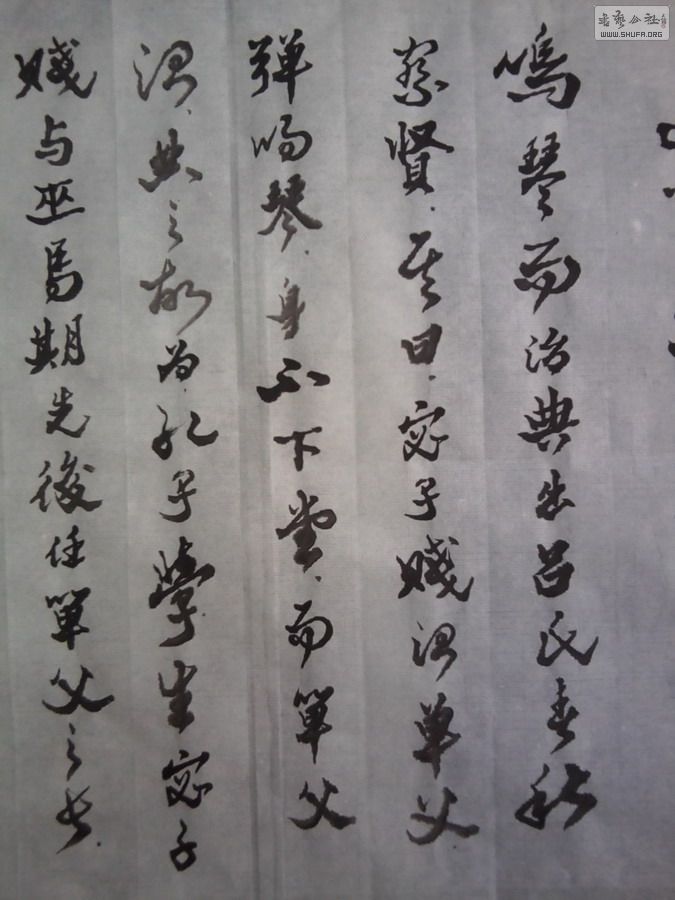 鸣琴而治典出吕氏春秋
察賢.其曰.宓子賤治单父
彈鸣琴.身不下堂.而單父
治.典之故为.孔子學生宓子
賤与巫馬期先後任單父之长.
書藝公社
WWW.SHUFA.ORG